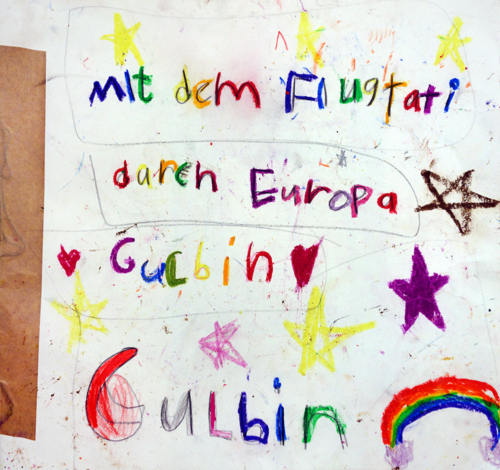 mIt dem Flugtati
durch Europa
GuLbin
GuLbin